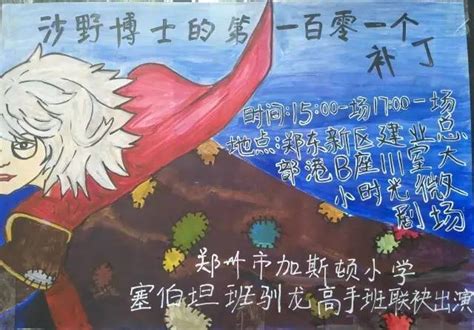 沙野博士的第一百零一个
补丁
时间:15:00一场17:00一场
地点:郑东新区建业总
部港B座111室大
小时光微
剧场
郑州市加斯顿小学
塞伯坦班驯龙高手班联袂出演